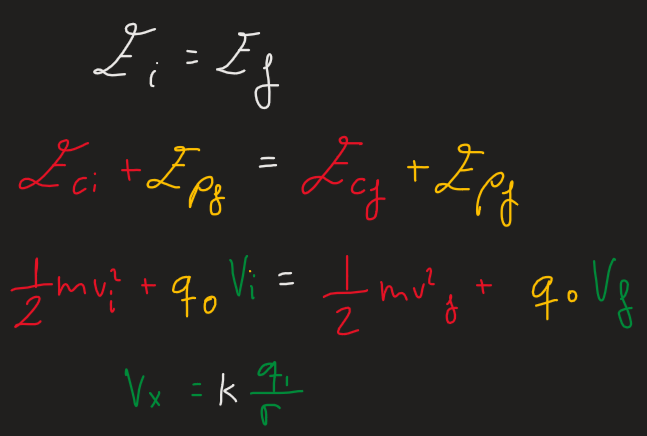 E_i = E_f
E_ci + E_pf = E_cf + E_pf
1/2 mv_i² + q_0 V_i = 1/2 mv²_f + q_0 V_f
V_x = k q_1/r